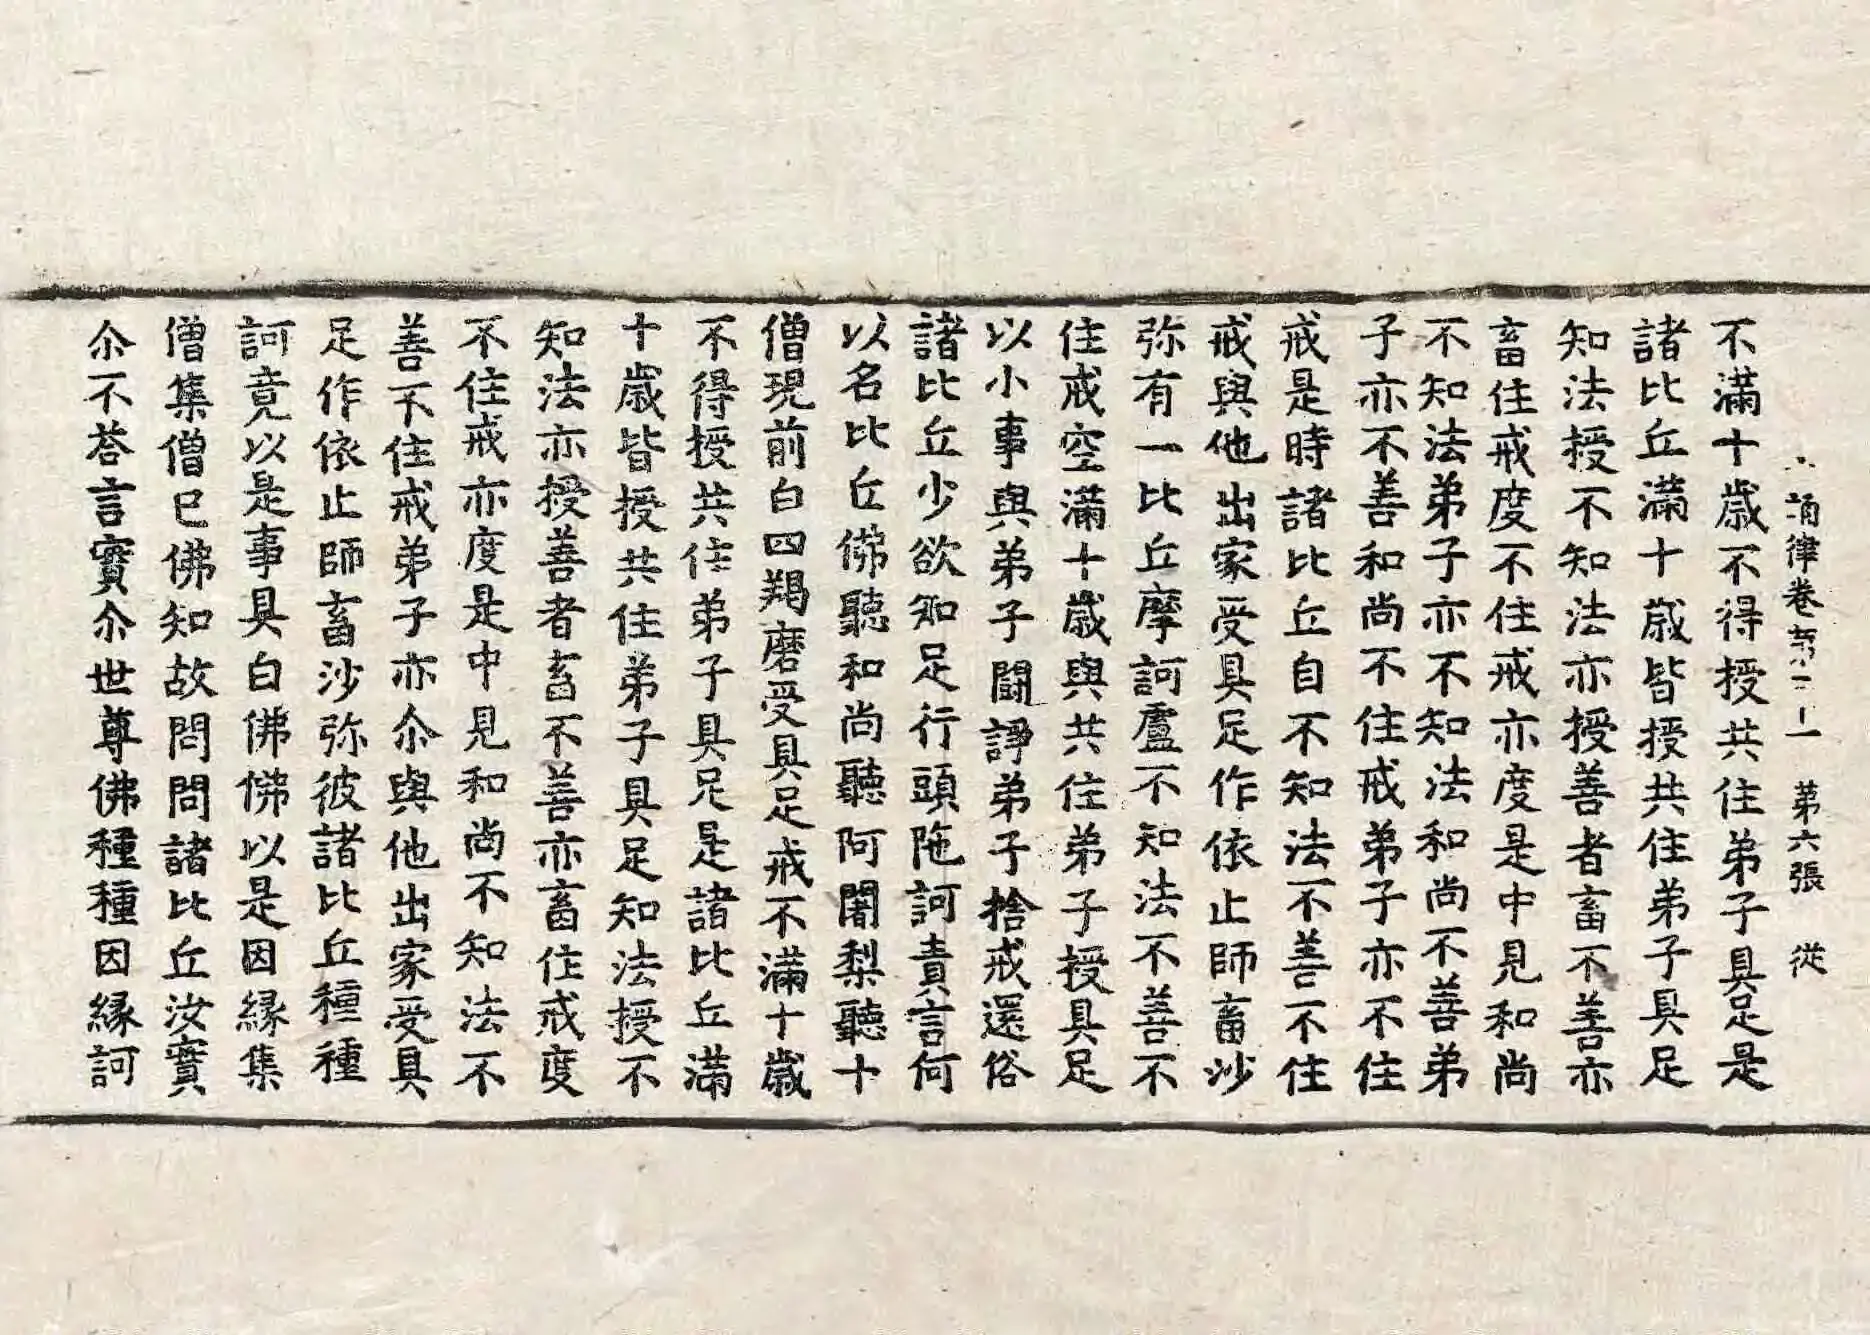 誦律卷第二十一 第六張 從
不滿十歲不得授共住弟子具足是
諸比丘滿十歲皆授共住弟子具足
知法授不知法亦授善者畜不善亦
畜住戒度不住戒亦度是中見和尚
不知法弟子亦不知法和尚不善弟
子亦不善和尚不住戒弟子亦不住
戒是時諸比丘自不知法不善不住
戒與他出家受具足作依止師畜沙
弥有一比丘摩訶盧不知法不善不
住戒空滿十歲與共住弟子授具足
以小事與弟子鬪諍弟子捨戒還俗
諸比丘少欲知足行頭陁訶責言何
以名比丘佛聽和尚聽阿闍梨聽十
僧現前白四羯磨受具足戒不滿十歲
不得授共住弟子具足是諸比丘滿
十歲皆授共住弟子具足知法授不
知法亦授善者畜不善亦畜住戒度
不住戒亦度是中見和尚不知法不
善不住戒弟子亦尒與他出家受具
足作依止師畜沙弥彼諸比丘種種
訶竟以是事具白佛佛以是因緣集
僧集僧已佛知故問問諸比丘汝實
尒不荅言實尒世尊佛種種因緣訶